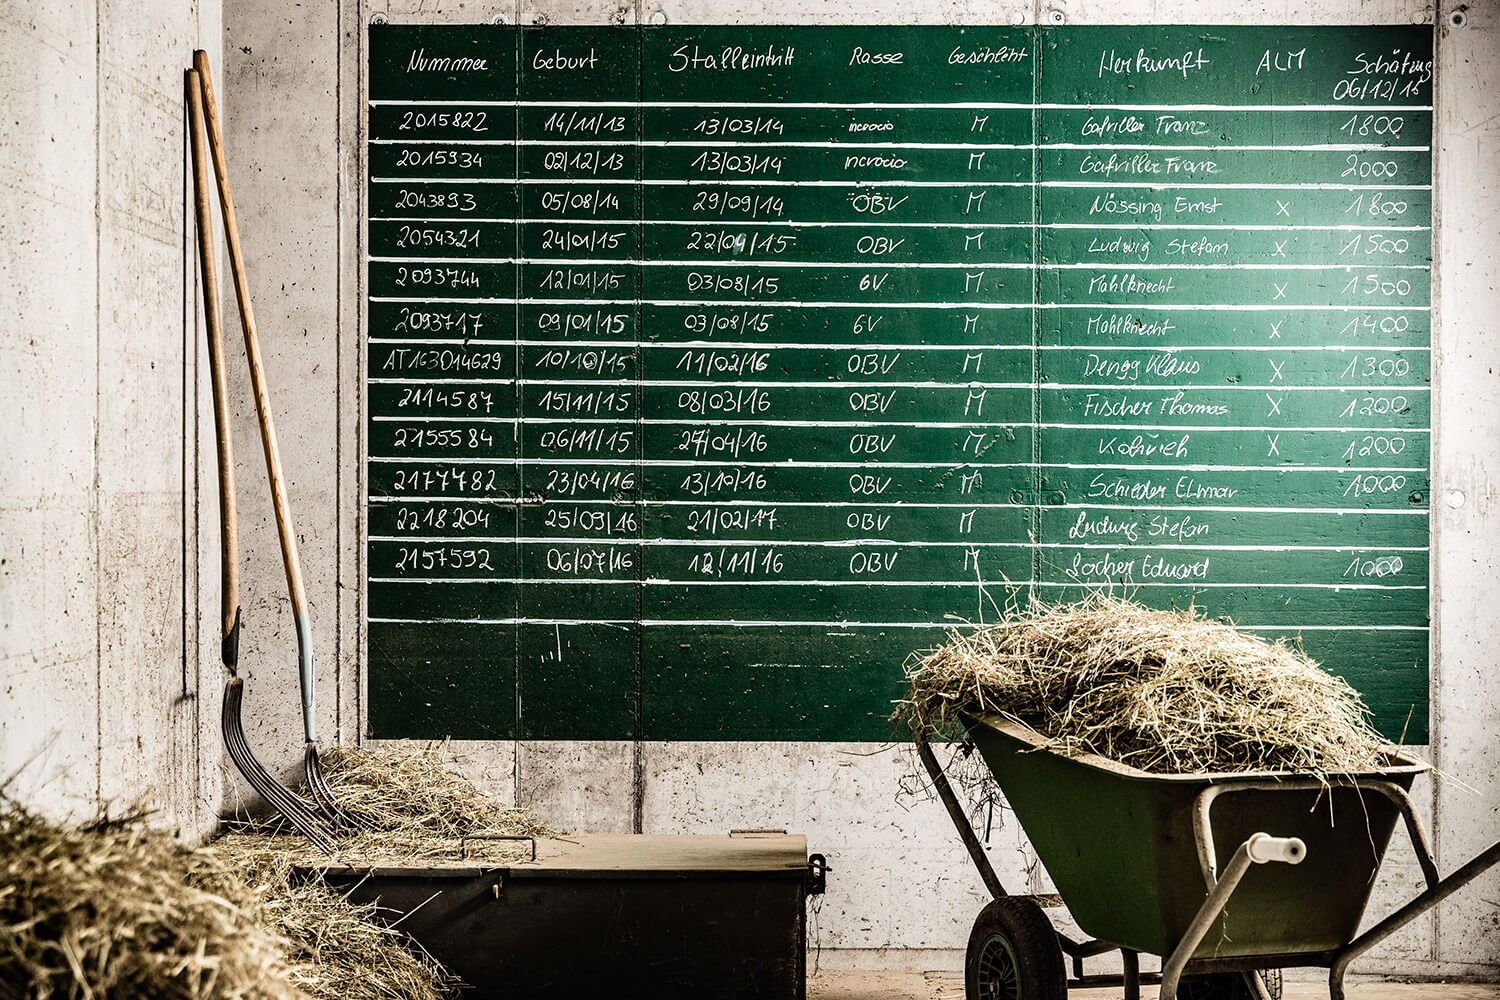 Nummer Geburt Stalleintritt Rasse Geschlecht Herkunft ALM Schätzung
06/12/16
2015822 14/11/13 13/03/14 incrocio M Gafriller Franz 1800
2015934 02/12/13 13/03/14 incrocio M Gafriller Franz 2000
2043893 05/08/14 29/09/14 ÖBV M Nössing Ernst X 1800
2054321 24/01/15 22/04/15 OBV M Ludwig Stefan X 1500
2093744 12/01/15 03/08/15 GV M Mahlknecht X 1500
2093717 09/01/15 03/08/15 GV M Mahlknecht X 1400
AT163014629 10/10/15 11/02/16 OBV M Dengg Klaus X 1300
2114587 15/11/15 08/03/16 OBV M Fischer Thomas X 1200
2155584 06/11/15 27/04/16 OBV M X 1200
2177782 23/04/16 13/10/16 OBV M Schieder Elmar 1000
2218204 25/09/16 21/02/17 OBV M Ludwig Stefan
2157592 06/07/16 12/11/16 OBV M Locher Eduard 1000